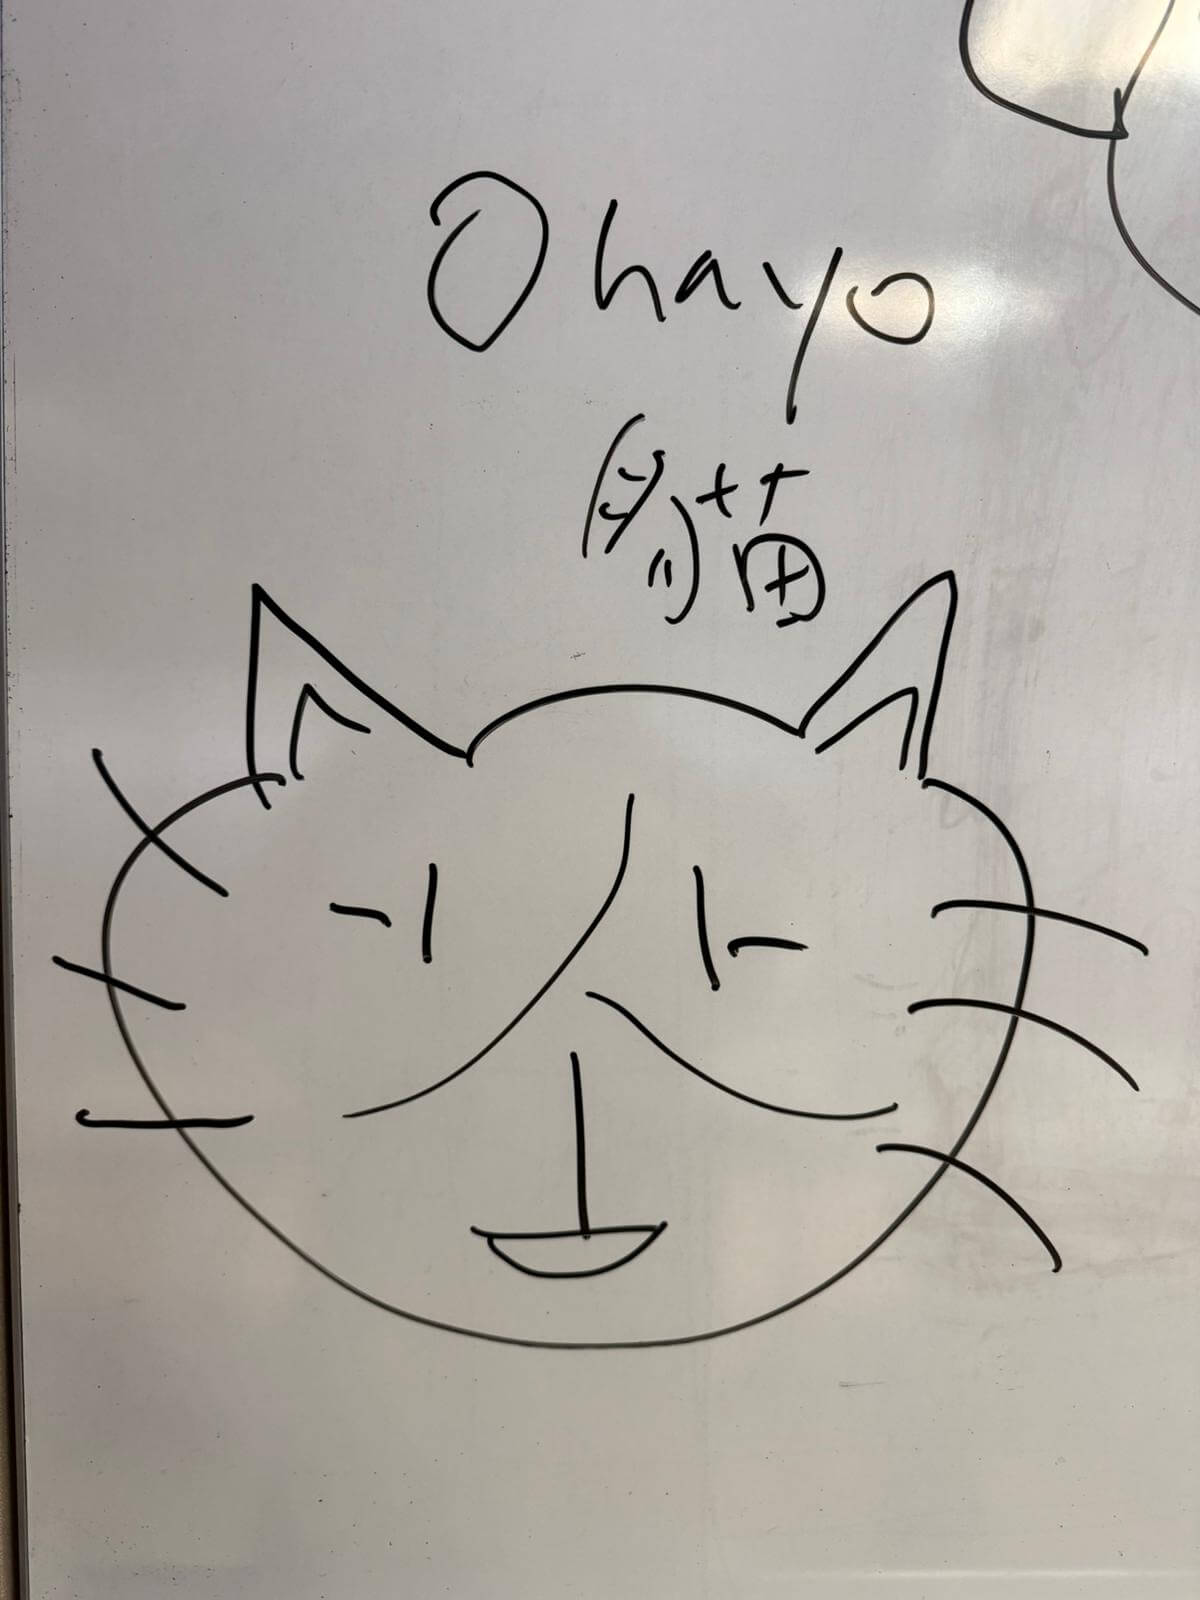 Ohayo
貓